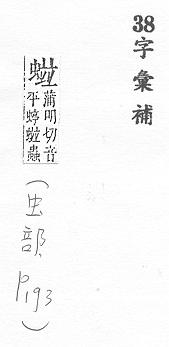 38 字彙補
蒲明切音
平蝏蟲
(虫部, P193)